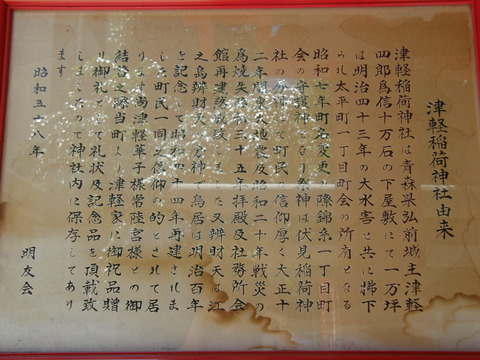 津軽稲荷神社由来
津軽稲荷神社は青森県弘前城主津軽
四郎為信十万石の下屋敷にて一万坪
は明治四十三年の大水害と共に撈下
られ太平町一丁目町会の所有となる
昭和七年町名変更の際錦糸一丁目町
会の守護神となり祭神は伏見稲荷神
社の分神で町民の信仰厚く大正十
二年関東大地震及昭和二十年戦災の
為焼失昭和三十五年拝殿及社務所会
館再建致しました又辨財天は江
之島辨財天の分神で鳥居は明治百年
を記念して昭和四十四年再建されま
した町民一同之信仰の的とされて居
ります尚津軽華子様常陸宮様との御
結婚之際当町より津軽家に御祝品贈
り御礼として礼状及記念品を頂戴致
しましたので神社内に保存してあり
ます
昭和五十八年
明友会